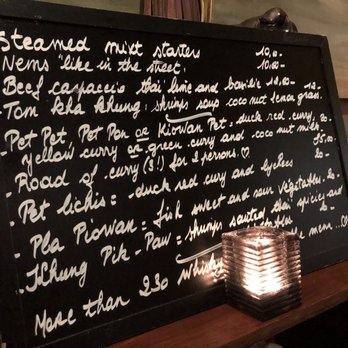 Steamed mixt starters 10,00-
Nems like in the street: 10.00-
Beef capaccio thai lime and basilic 12,00-
- Tom kha khung: shrimps soup coconut lemon grass.
- Pet Pet, Pet Pan or Kiowan Pet: duck red curry,
yellow curry or green curry and coconut milk 20-
- Road of curry (3!) for 2 persons. ♡ 55,00
- Pet lichis: duck red curry and lychees 20-
- Pla Piowan: fish sweet and sour vegetables. 20-
- Khung Pik-Paw: shrimps sauted thai spices and
vegetables 20-
More than 230 whisky the menu...♡